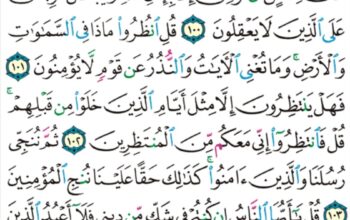 عَلَى ٱلَّذِينَ لَا يَعْقِلُونَ ١٠٠ قُلِ ٱنظُرُوا۟ مَاذَا فِى ٱلسَّمَٰوَٰتِ
وَٱلْأَرْضِ ۚ وَمَا تُغْنِى ٱلْءَايَٰتُ وَٱلنُّذُرُ عَن قَوْمٍ لَّا يُؤْمِنُونَ ١٠١
فَهَلْ يَنتَظِرُونَ إِلَّا مِثْلَ أَيَّامِ ٱلَّذِينَ خَلَوْا۟ مِن قَبْلِهِمْ ۚ
قُلْ فَٱنتَظِرُوٓا۟ إِنِّى مَعَكُم مِّنَ ٱلْمُنتَظِرِينَ ١٠٢ ثُمَّ نُنَجِّى
رُسُلَنَا وَٱلَّذِينَ ءَامَنُوا۟ ۚ كَذَٰلِكَ حَقًّا عَلَيْنَا نُنجِ ٱلْمُؤْمِنِينَ
١٠٣ قُلْ يَٰٓأَيُّهَا ٱلنَّاسُ إِن كُنتُمْ فِى شَكٍّ مِّن دِينِى فَلَآ أَعْبُدُ ٱلَّذِينَ